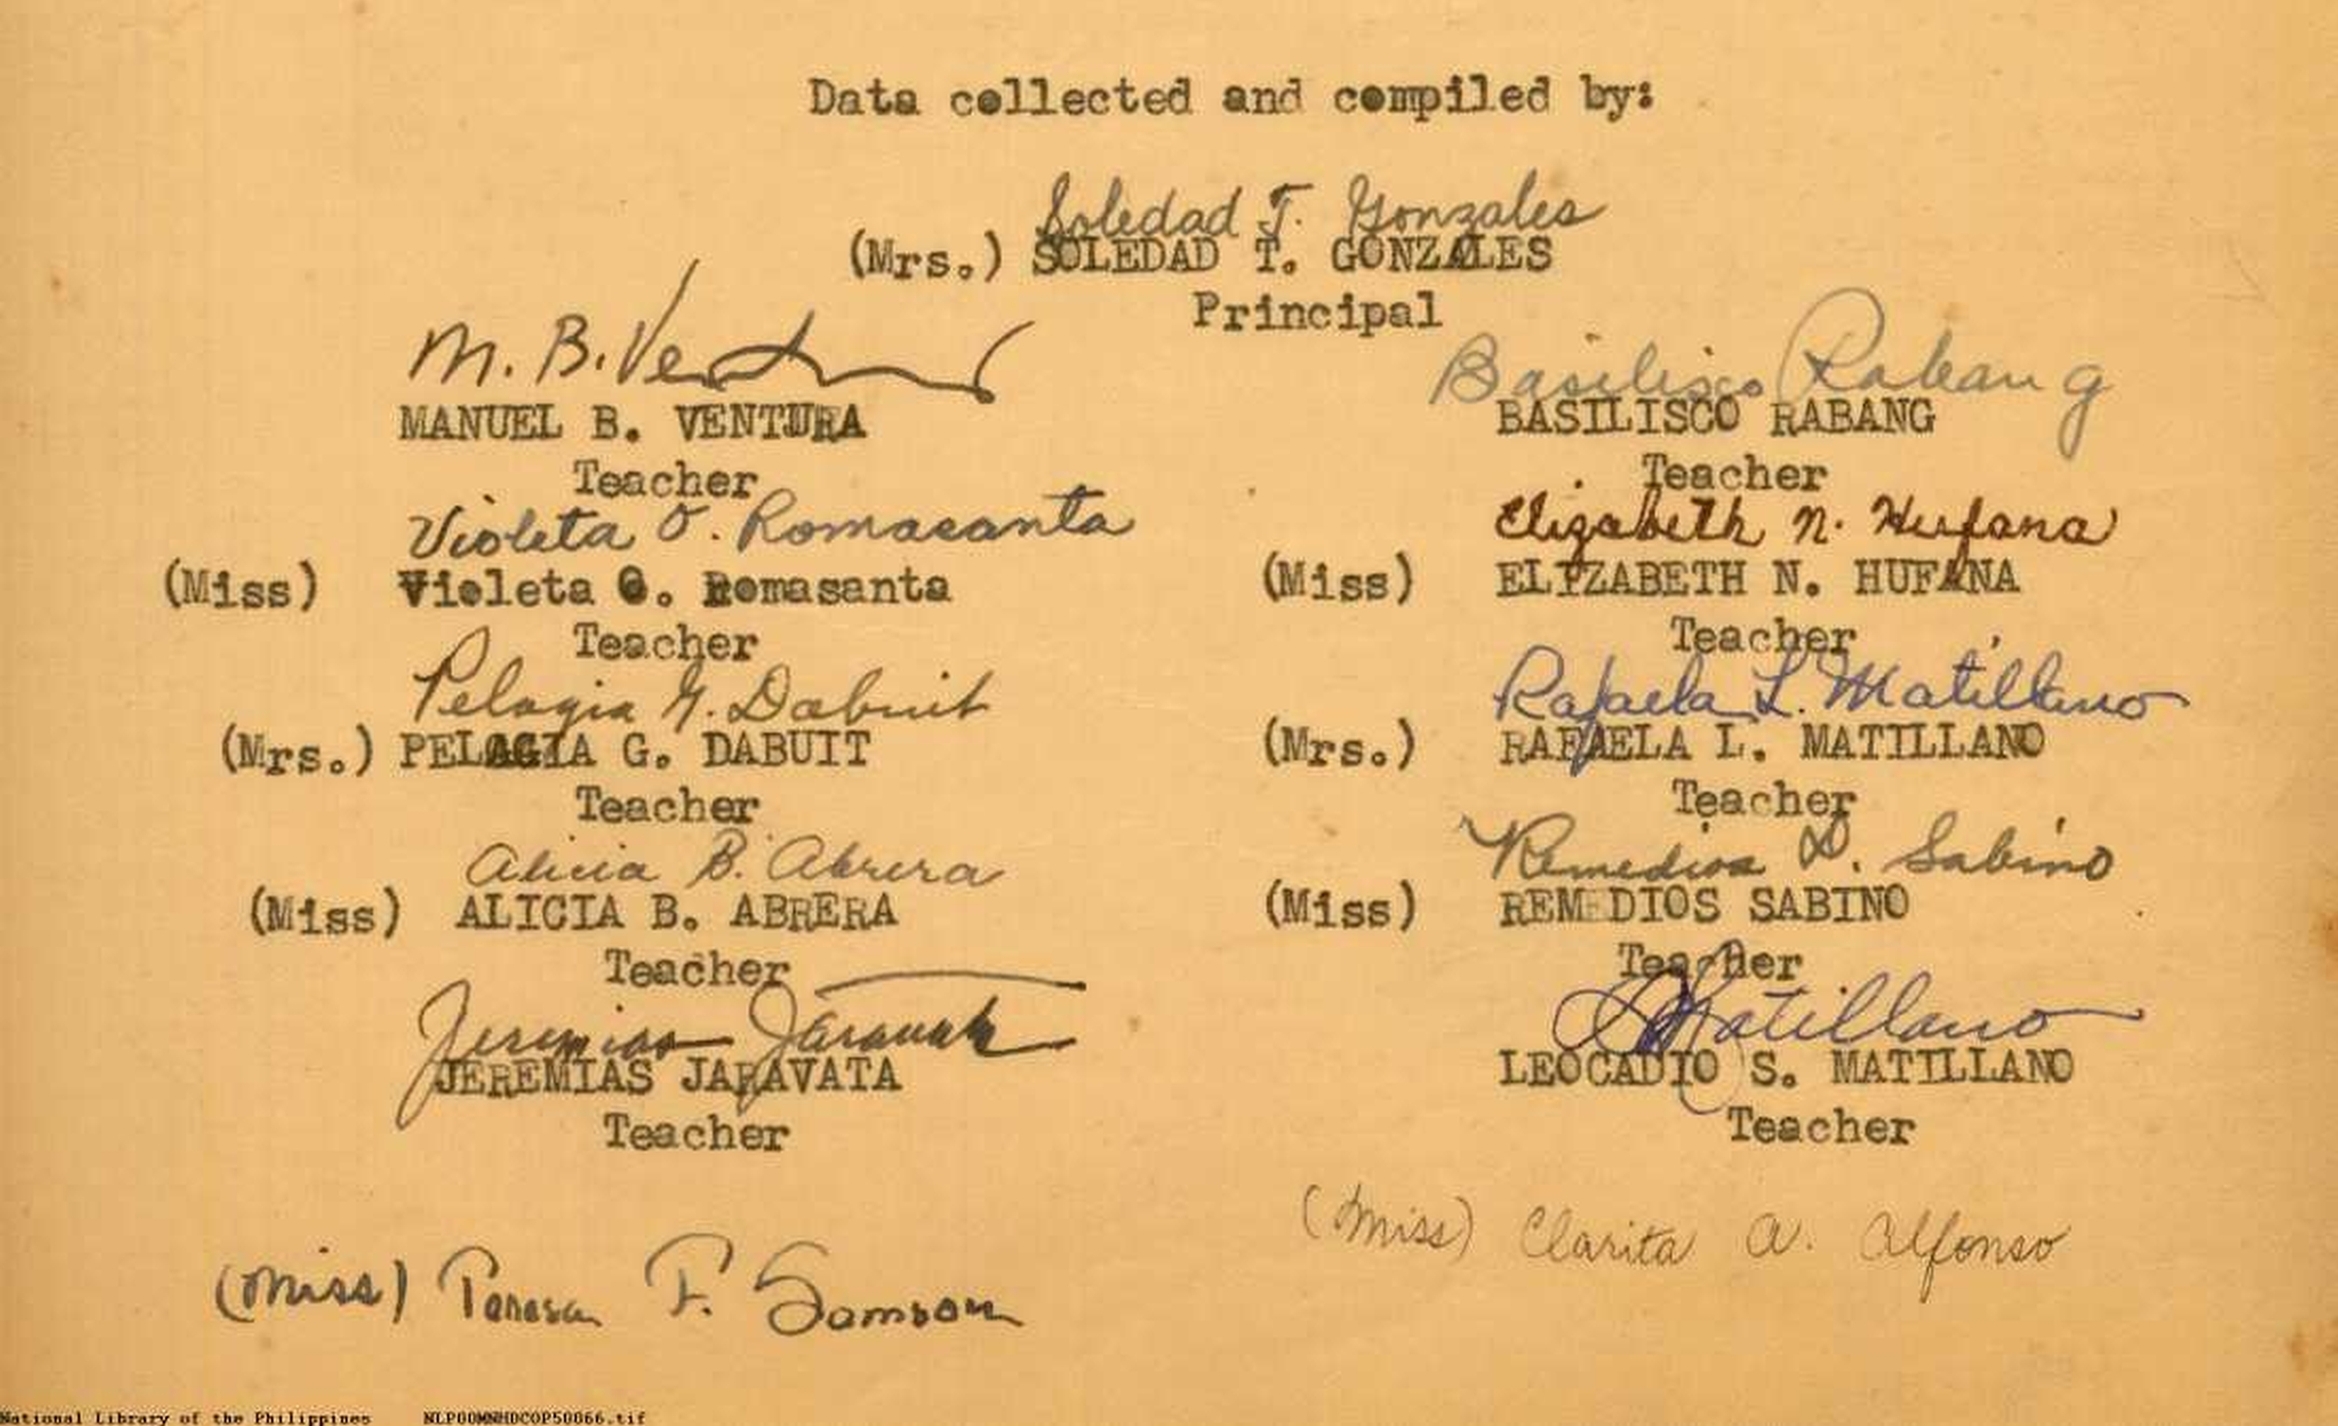 Data collected and compiled by:
Soledad T. Gonzales
(Mrs.) SOLEDAD T. GONZALES
Principal
M. B. Ventura
MANUEL B. VENTURA
Teacher
Violeta O. Romasanta
(Miss) Violeta O. Romasanta
Teacher
Pelagia G. Dabuit
(Mrs.) PELAGIA G. DABUIT
Teacher
Alicia B. Abrera
(Miss) ALICIA B. ABRERA
Teacher
Jeremias Jaravata
JEREMIAS JARAVATA
Teacher
(Miss) Teresa F. Samson
Basilisco Rabang
BASILISCO RABANG
Teacher
Elizabeth N. Hufana
(Miss) ELIZABETH N. HUFANA
Teacher
Rafaela L. Matillano
(Mrs.) RAFAELA L. MATILLANO
Teacher
Remedios D. Sabino
(Miss) REMEDIOS SABINO
Teacher
Matillano
LEOCADIO S. MATILLANO
Teacher
(Miss) Clarita A. Alfonso
National Library of the Philippines NLPOOMNHDCOP50066.tif